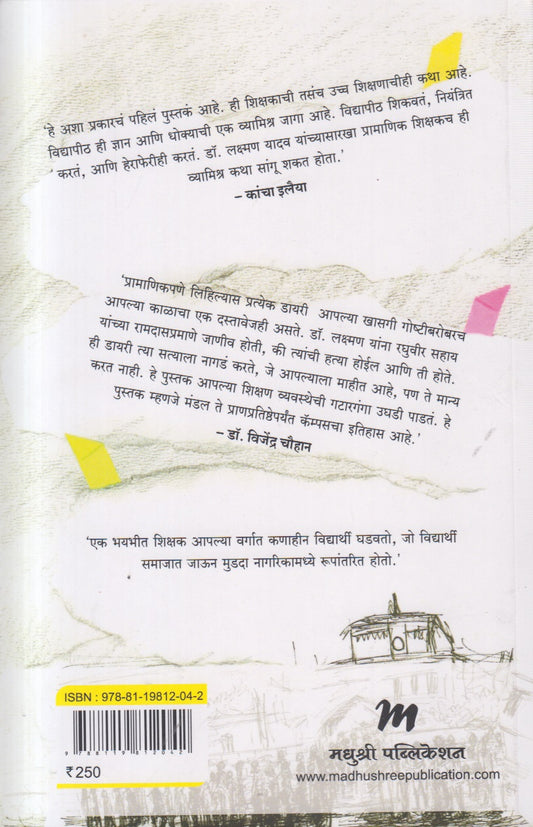 'हे अशा प्रकारचं पहिलं पुस्तकं आहे. ही शिक्षकाची तसंच उच्च शिक्षणाचीही कथा आहे.
विद्यापीठ ही ज्ञान आणि धोक्याची एक व्यामिश्र जागा आहे. विद्यापीठ शिकवतं, नियंत्रित
करतं, आणि हेराफेरीही करतं. डॉ. लक्ष्मण यादव यांच्यासारखा प्रामाणिक शिक्षकच ही
व्यामिश्र कथा सांगू शकत होता.'
– कांचा इलैया
'प्रामाणिकपणे लिहिल्यास प्रत्येक डायरी आपल्या खासगी गोष्टीबरोबरच
आपल्या काळाचा एक दस्तावेजही असते. डॉ. लक्ष्मण यांना रघुवीर सहाय
यांच्या रामदासप्रमाणे जाणीव होती, की त्यांची हत्या होईल आणि ती होते.
ही डायरी त्या सत्याला नागडं करते, जे आपल्याला माहीत आहे, पण ते मान्य
करत नाही. हे पुस्तक आपल्या शिक्षण व्यवस्थेची गटारगंगा उघडी पाडतं. हे
पुस्तक म्हणजे मंडल ते प्राणप्रतिष्ठेपर्यंत कॅम्पसचा इतिहास आहे.'
– डॉ. विजेंद्र चौहान
'एक भयभीत शिक्षक आपल्या वर्गात कणाहीन विद्यार्थी घडवतो, जो विद्यार्थी
समाजात जाऊन मुडदा नागरिकामध्ये रूपांतरित होतो.'
ISBN : 978-81-19812-04-2
9 788119 812042
₹ 250
मधुश्री पब्लिकेशन
www.madhushreepublication.com